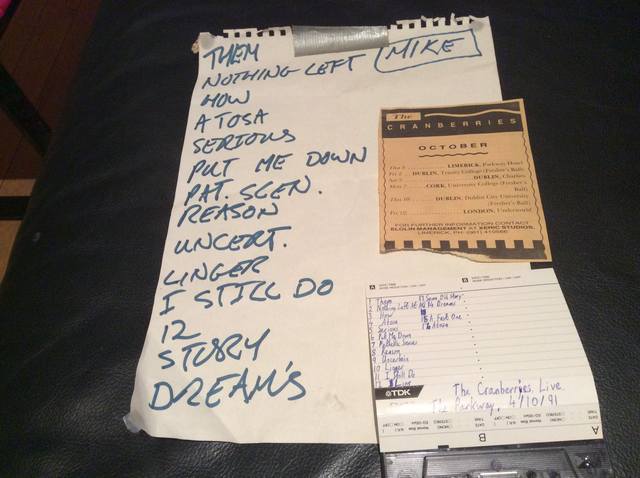 THEM
NOTHING LEFT
MIKE
HOW
ATOSA
SERIOUS
PUT ME DOWN
PAT. SCEN.
REASON
UNCERT.
LINGER
I STILL DO
12
STORY
DREAMS
The
CRANBERRIES
OCTOBER
LIMERICK, Parkway Hotel
DUBLIN, Trinity College (Fresher's Ball)
DUBLIN, Charlies
CORK, University College (Fresher's Ball)
DUBLIN, Dublin City University (Fresher's Ball)
LONDON, Underworld
FOR FURTHER INFORMATION CONTACT
MANAGEMENT AT XERIC STUDIOS,
LIMERICK, PH: (061)
A
B
1 Them 13 Same Old Story
2 Nothing Left At All 14 Dreams
3 How
4 Atosa 15 A Fast One
5 Serious 16 Atosa
6 Put Me Down
7 Pathetic Senses
8 Reason
9 Uncertain
10 Linger
11 I Still Do
12 Liar
TDK
The Cranberries Live
The Parkway, 4/10/91
A
B